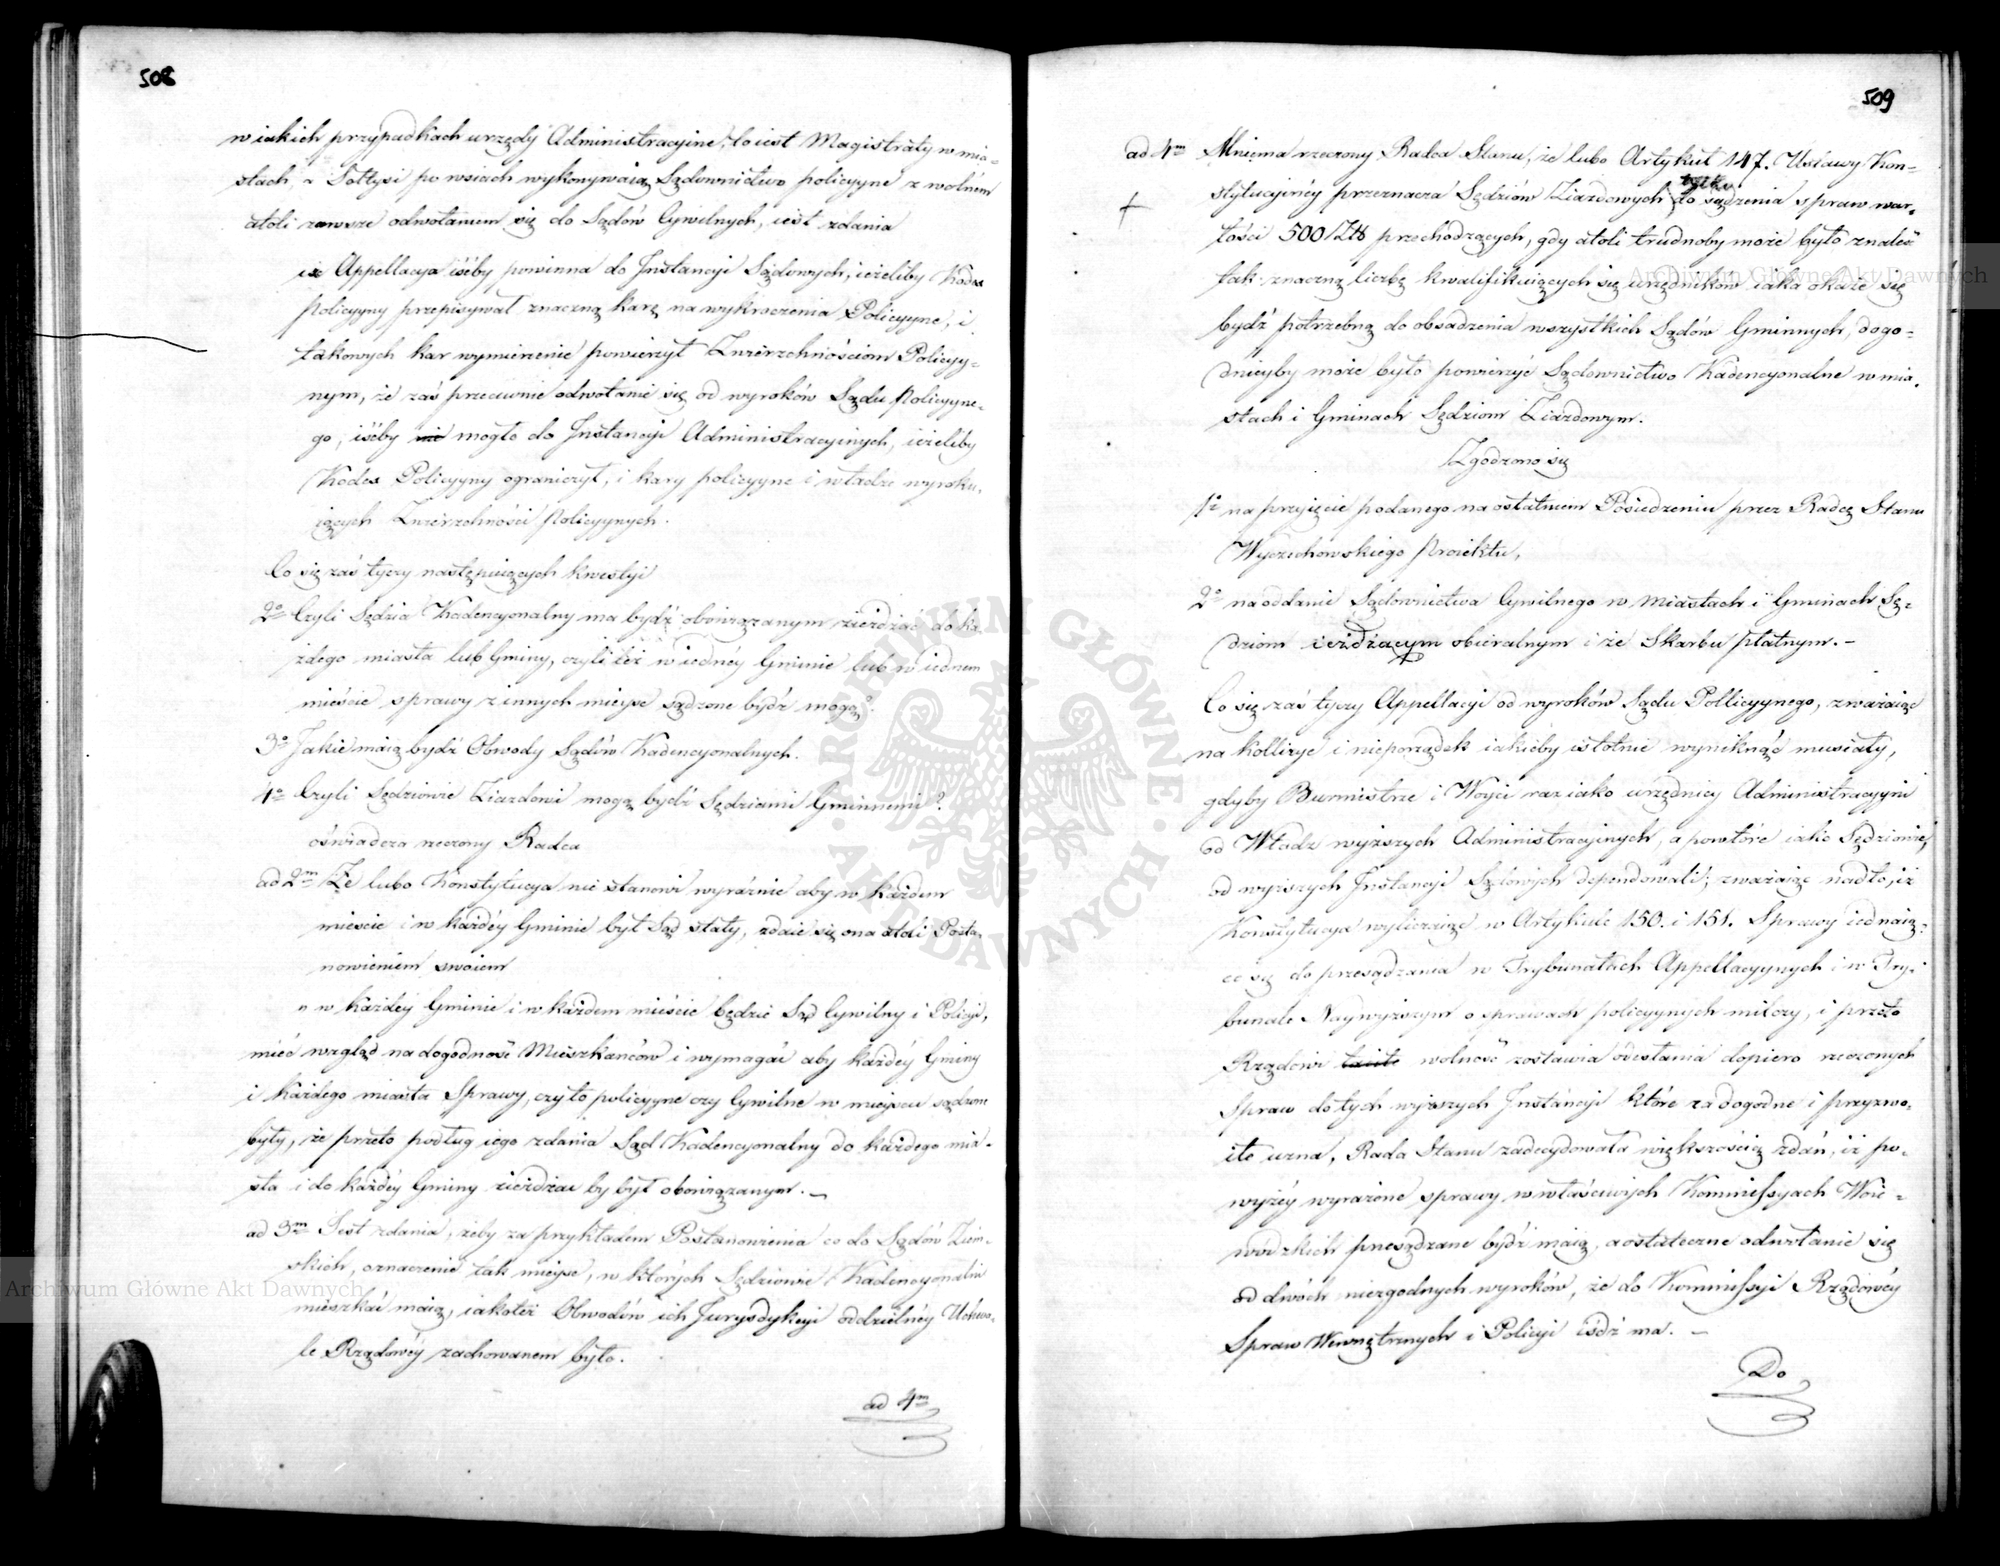 508
w iakich przypadkach urzędy Administracyine, to iest Magistraty w mia-
stach, a Sołtysi po wsiach wykonywaią Sądownictwo policyyne z wolném
atoli zawsze odwołaniem się do Sądów Cywilnych, iest zdania
iż Appellacya iśćby powinna do Instancyi Sądowych, ieżeliby Kodex
Policyyny przepisywał znaczną karę na wykroczenia Policyyne, i
takowych kar wymierzenie powierzył Zwierzchnościom Policyy-
nym, że zaś przeciwnie odwołanie się od wyroków Sądu Policyyne-
go, iśćby nie mogło do Instancyi Administracyinych, ieżeliby
Kodex Policyyny ograniczył, i kary policyyne i władze wyroku-
iących Zwierzchności Policyynych.
Co się zaś tyczy następuiących kwestyi
2o Czyli Sędzia Kadencyonalny ma bydź obowiązanym zieżdżać do ka-
żdego miasta lub Gminy, czyli też w iednéy Gminie lub w iednem
mieście sprawy z innych mieysc sądzone bydź mogą?
3o Jakie maią bydź Obwody Sądów Kadencyonalnych.
4o Czyli Sędziowie Ziazdowi mogą bydź Sędziami Gminnemi?
oświadcza rzeczony Radca
ad 2m Że lubo Konstytucya nie stanowi wyraźnie aby w każdem
mieście i w każdéy Gminie był Sąd stały, zdaie się ona atoli Posta-
nowieniem swoiem
" w każdéy Gminie i w każdem mieście będzie Sąd Cywilny i Policyi,
mieć wzgląd na dogodność Mieszkańców i wymagać aby każdéy Gminy
i każdego miasta Sprawy, czy to policyyne czy Cywilne w mieyscu sądzone
były, że przeto podług iego zdania Sąd Kadencyonalny do każdego mia-
sta i do każdéy Gminy zieżdżać by był obowiązanym. –
ad 3m Jest zdania, żeby za przykładem Postanowienia co do Sądów Ziem-
skich, oznaczenie tak mieysc, w których Sędziowie Kadencyonalni
mieszkać maią, iakoteż Obwodów ich Jurysdykcyi oddzielnéy Uchwa-
le Rządowéy zachowanem było.
ad 4m
509
ad 4m Mniema rzeczony Radca Stanu, że lubo Artykuł 147. Ustawy Kon-
stytucyinéy przeznacza Sędziów Ziazdowych tylko do sądzenia spraw war-
tości 500 Złt przechodzących, gdy atoli trudnoby może było znaleść
tak znaczną liczbę kwalifikuiących się urzędników iaka okaże się
bydź potrzebną do obsadzenia wszystkich Sądów Gminnych, dogo-
dniéyby może było powierzyć Sądownictwo Kadencyonalne w mia-
stach i Gminach Sędziom Ziazdowym.
Zgodzono się
1o na przyięcie podanego na ostatniem Posiedzeniu przez Radcę Stanu
Wyczechowskiego Proiektu,
2o na oddanie Sądownictwa Cywilnego w Miastach i Gminach Sę-
dziom ieżdżącym obieralnym i ze Skarbu płatnym. –
Co się zaś tyczy Appellacyi od wyroków Sądu Pollicyynego, zważaiąc
na kollizye i nieporządek iakieby istotnie wyniknąć musiały,
gdyby Burmistrze i Woyci raz iako urzędnicy Administracyyni
od Władz wyższych Administracyinych, a powtóre iako Sędziowie
od wyższych Instancyi Sądowych dependowali; zważaiąc nadto, iż
Konstytucya wyliczaiąc w Artykule 150. i 151. Sprawy iednaią-
ce się do przesądzania w Trybunałach Appellacyynych i w Try-
bunale Naywyższym o sprawach policyynych milczy, i przeto
Rządowi wolność zostawia odesłania dopiero rzeczonych
Spraw do tych wyższych Instancyi które za dogodne i przyzwo-
ite uzna, Rada Stanu zadecydowała większością zdań, iż po-
wyżéy wyrażone sprawy w właściwych Kommissyach Woie-
wódzkich przesądzane bydź maią, a ostateczne odwołanie się
od dwóch niezgodnych wyroków, że do Kommissyi Rządowéy
Spraw Wewnętrznych i Policyi iśdź ma. –
Do
Archiwum Główne Akt Dawnych
Archiwum Główne Akt Dawnych
ARCHIWUM GŁÓWNE AKT DAWNYCH